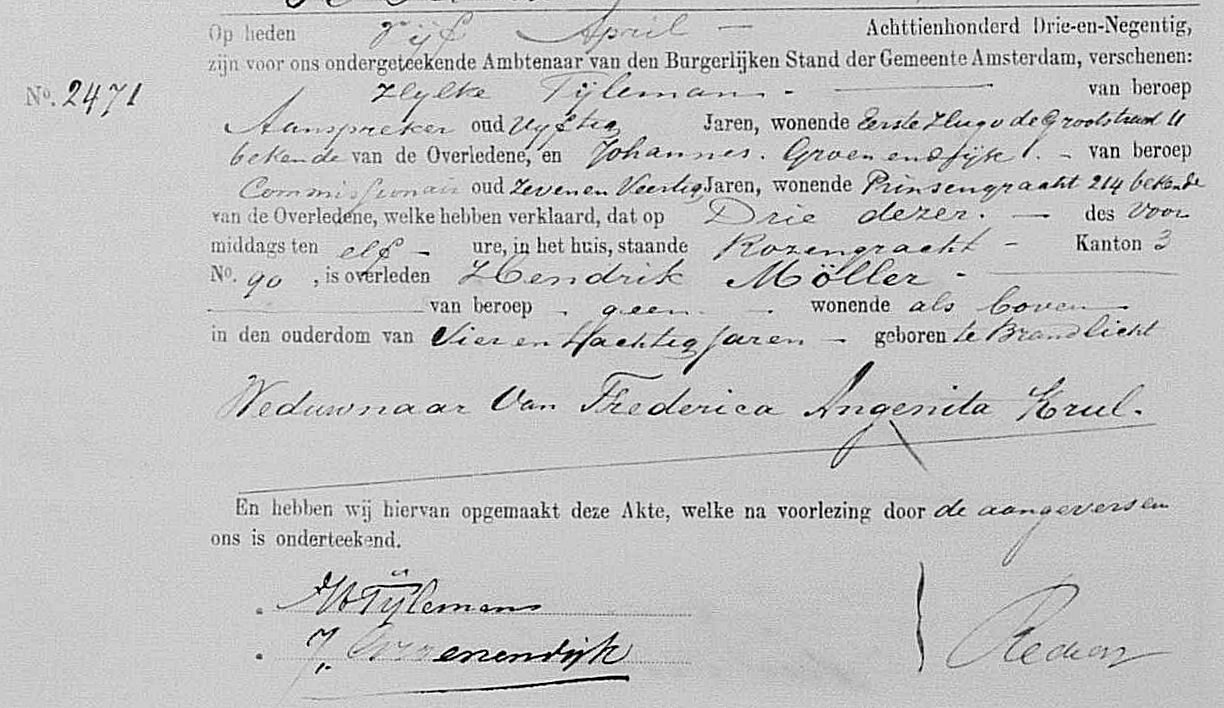 Op heden vijf April — Achttienhonderd Drie-en-Negentig,
zijn voor ons ondergeteekende Ambtenaar van den Burgerlijken Stand der Gemeente Amsterdam, verschenen:
No. 2471 Hylke Tijlemans. — van beroep
Aanspreker oud Vyftig Jaren, wonende Eerste Hugo de Grootstraat 11
bekende van de Overledene, en Johannes Groenendijk — van beroep
Commissionair oud Zeven en Veertig Jaren, wonende Prinsengracht 214 bekende
van de Overledene, welke hebben verklaard, dat op Drie dezer. — des Voor
middags ten elf — ure, in het huis, staande Rozengracht — Kanton 3
No. 90, is overleden Hendrik Möller —
van beroep geen wonende als boven
in den ouderdom van Vier en tachtig Jaren — geboren te Brandlicht
Weduwnaar Van Frederica Angenita Krul.
En hebben wij hiervan opgemaakt deze Akte, welke na voorlezing door de aangevers en
ons is onderteekend.
Tijlemans
J. Groenendijk